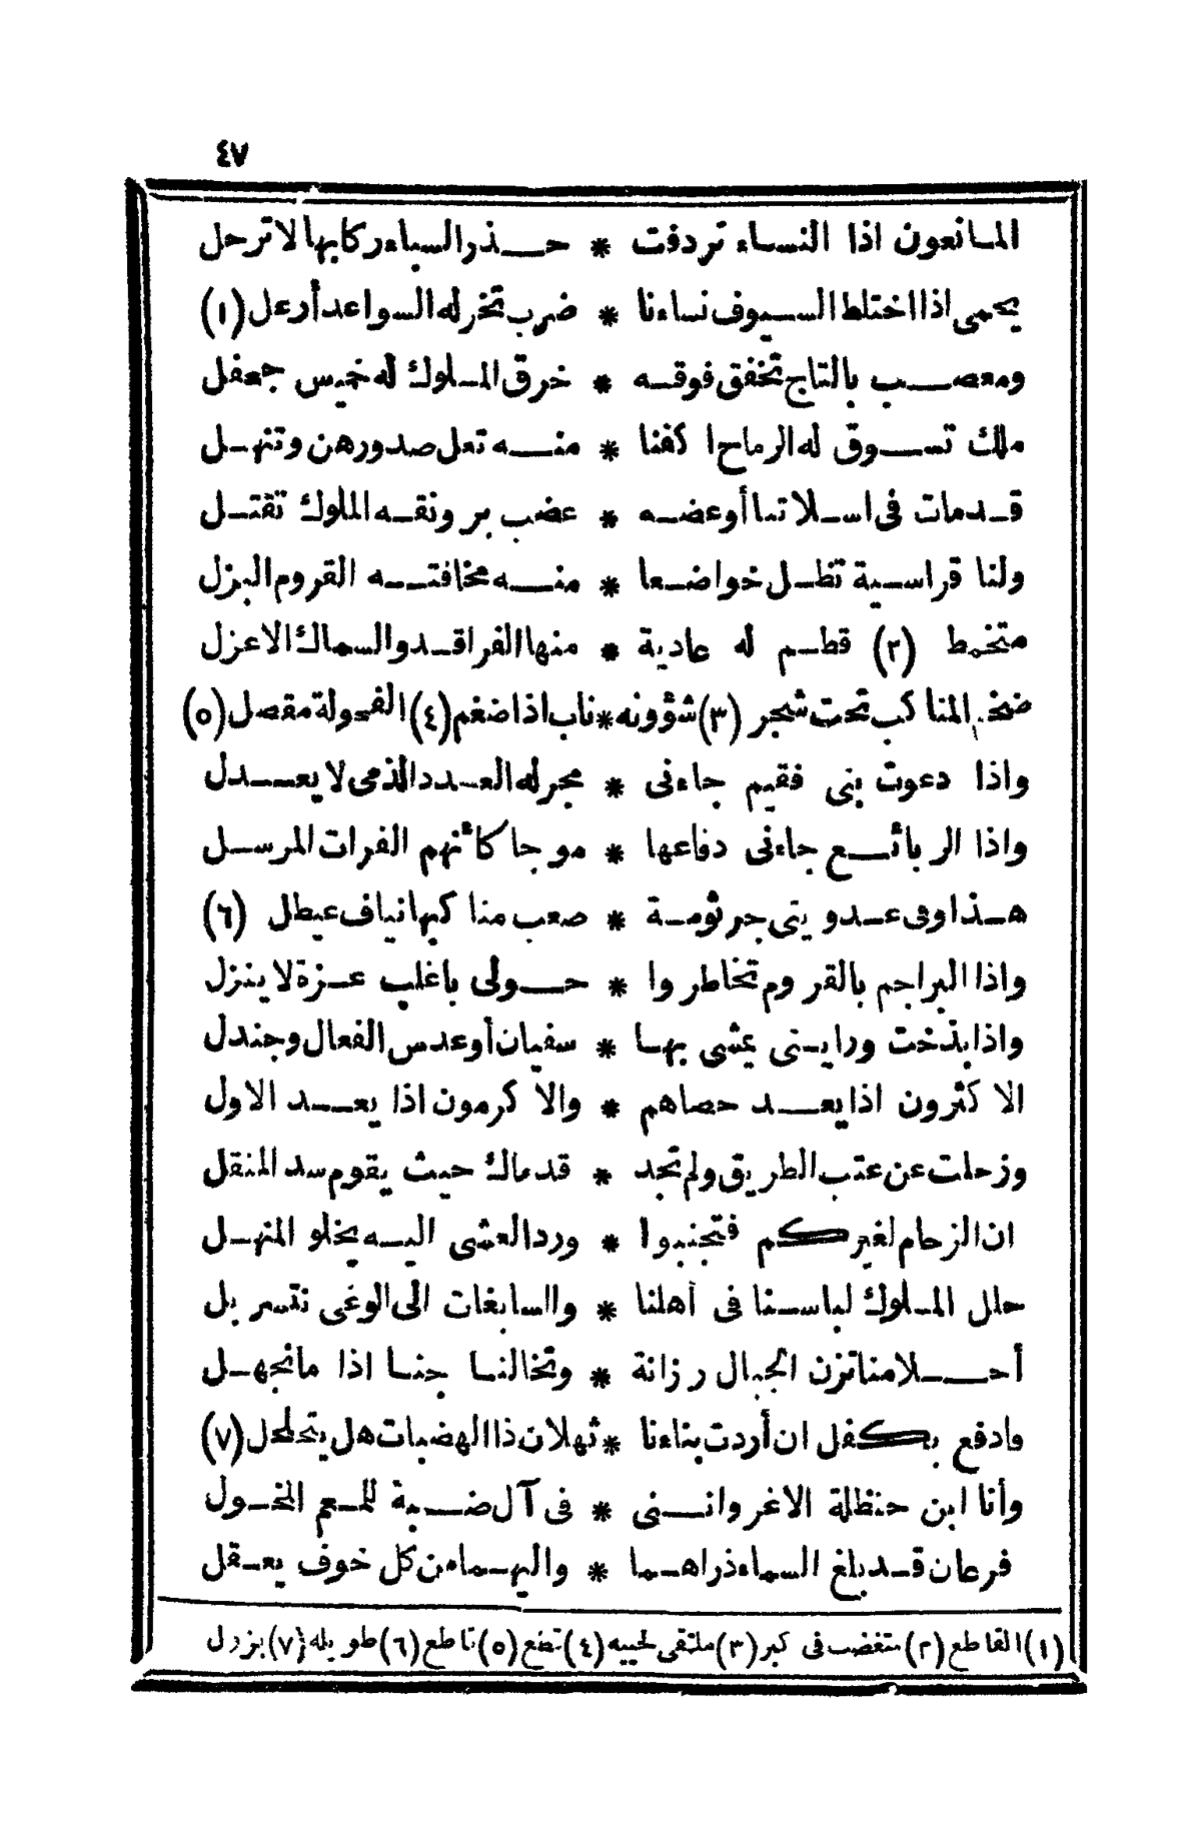 ٤٧
المانعون اذا النساء تردفت * حذر السباء ركابها لا ترحل
يحمى اذا اختلط السيوف نساءنا * ضرب تخر له السواعد أرعل (١)
ومعصب بالتاج تخفق فوقه * خرق الملوك له خميس جحفل
ملك تسوق له الرماح ا كفنا * منه تعل صدورهن وتنهل
قدمات فى اسلاتنا أوعضه * عضب برونقه الملوك تقتل
ولنا قراسية تظل خواضعا * منه مخافته القروم البزل
متخمط (٢) قطم له عادية * منها الفراقد والسماك الاعزل
ضخم المناكب تحت شجر (٣) شؤونه * ناب اذا ضغم (٤) الفحولة مقصل (٥)
واذا دعوت بنى فقيم جاءنى * مجر له العدد الذى لا يعدل
واذا الربائع جاءنى دفاعها * موجا كأنهم الفرات المرسل
هذا وفى عدويتى جرثومة * صعب مناكبها نياف عيطل (٦)
واذا البراجم بالقروم تخاطروا * حولى باغلب عزة لا ينزل
واذا بذخت ورايتى يمشى بها * سفيان أوعدس الفعال وجندل
الا كثرون اذا يعد حصاهم * والا كرمون اذا يعد الاول
وزحلت عن عتب الطريق ولم تجد * قدماك حيث يقوم سد المنقل
ان الزحام لغيركم فتجنبوا * ورد العشى اليه يخلو المنهل
حلل الملوك لباسنا فى أهلنا * والسابغات الى الوغى نتسربل
أحلامنا تزن الجبال رزانة * وتخالنا جنا اذا مانجهل
فادفع بكفل ان أردت بناءنا * ثهلان ذا الهضبات هل يتحلحل (٧)
وأنا ابن حنظلة الاغر واننى * فى آل ضبة للمعم المخول
فرعان قد بلغ السماء ذراهما * واليهما من كل خوف يعقل
(١) القاطع (٢) متغضب فى كبر (٣) ملتقى لحييه (٤) تضع (٥) قاطع (٦) طويله (٧) بزول